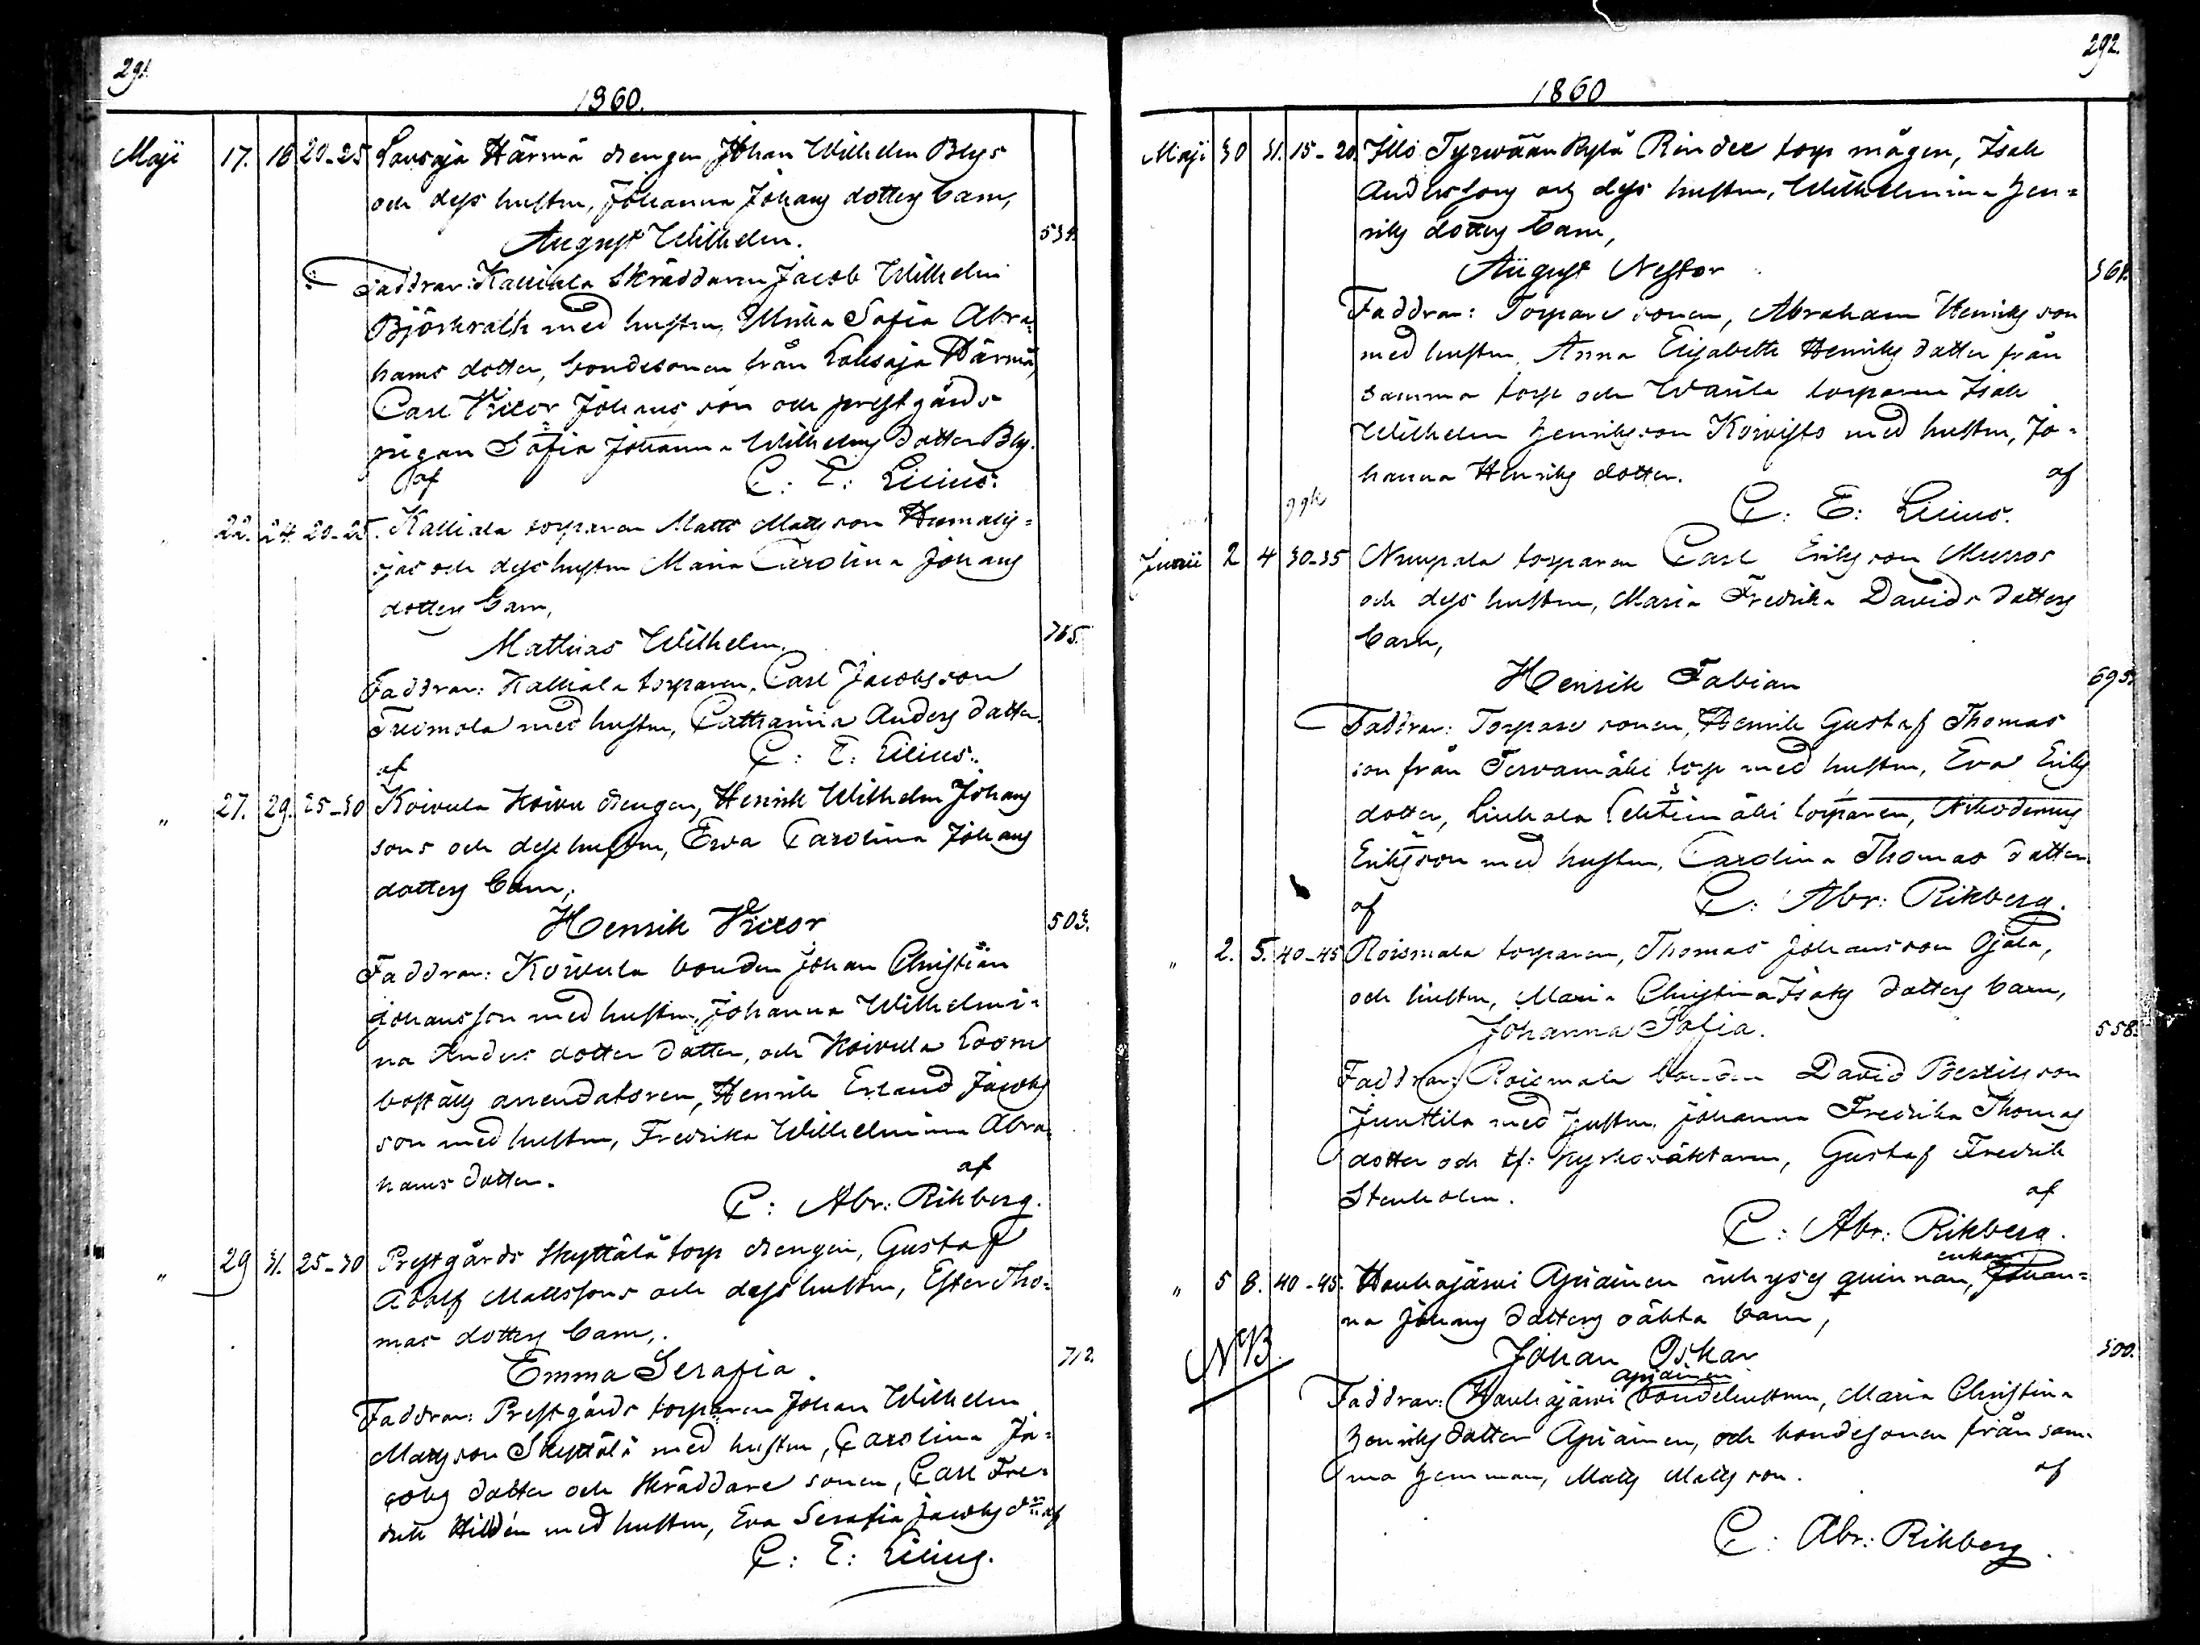 291.
1860.
Maji 17. 18 20-25 Sarsaja Härmä drengen Johan Wilhelm Blys
och dess hustru, Johanna Johans dotters barn,
August Wilhelm. 534.
Faddrar: Kalliala Skräddaren Jacob Wilhelm
Björkrath med hustru Ulrika Sofia Abra-
hams dotter, bondesonen från Härmä,
Carl Victor Johans son och prestgårds
pigan Sofia Johanna Wilhelms dotter Bly.
af C: E: Lilius.
" 22. 24. 20-25. Kalliala torparen Matts Matts son
och dess hustru Maria Carolina Johans
dotters barn,
Mathias Wilhelm. 765.
Faddrar: Kalliala torparen, Carl Jacobsson
med hustru, Catharina Anders dotter.
af C: E: Lilius.
" 27. 29. 25-30 Koivula Koivu drengen, Henrik Wilhelm Johans
sons och dess hustru, Ewa Carolina Johans
dotters barn,
Henrik Victor 503.
Faddrar: Koivula bonden Johan Christian
Johansson med hustru, Johanna Wilhelmi-
na Anders dotter dotter, och Koivula
boställs arrendatoren, Henrik Erland Jacobs
son med hustru, Fredrika Wilhelmina Abra-
hams dotter. af
C: Abr: Rikberg.
" 29 31. 25-30 Prestgårds Skyttälä torp drengen, Gustaf
Adolf Mattssons och dess hustru, Ester Tho-
mas dotters barn,
Emma Serafia 712.
Faddrar: Prestgårds torparen Johan Wilhelm
Matts son Skyttälä med hustru, Carolina Ja-
cobs dotter och Skräddare sonen, Carl Fre-
drik Hildén med hustru, Eva Serafia Jacobs dr: af
C: E: Lilius.
292.
1860
Maji 30 31. 15-20. Illo Tyrwään Kylä torp mågen, Isak
Anderssons och dess hustru, Wilhelmina Hen-
riks dotters barn,
August Nestor 561.
Faddrar: Torpare sonen, Abraham Henriks son
med hustru, Anna Elisabeth Henriks dotter från
samma torp och torparen Isak
Wilhelm Henriksson Koivisto med hustru, Jo-
hanna Henriks dotter. af
C: E: Lilius.
Junii 2 4 30-35 Nuupala torparen Carl Eriks son
och dess hustru, Maria Fredrika Davids dotters
barn,
Henrik Fabian 695.
Faddrar: Torpare sonen, Henrik Gustaf Thomas
son från Tervamäki torp med hustru, Eva Eriks
dotter, Liuhala torparen, Nikodemus
Eriksson med hustru, Carolina Thomas dotter
af C: Abr: Rikberg.
" 2. 5. 40-45 Roismala torparen, Thomas Johansson Ojala,
och hustru, Maria Christina Isaks dotters barn,
Johanna Sofia. 558.
Faddrar: Roismala bonden David Bertils son
Junttila med hustru, Johanna Fredrika Thomas
dotter och tf: kyrkoväktaren, Gustaf Fredrik
Stenholm. af
C: Abr: Rikberg.
" 5 8. 40-45. Houhajärwi Apiainen inhyses quinnan, enkan Johan-
na Johans dotters oäkta barn,
NB. Johan Oskar 500.
Apiainen
Faddrar: Houhajärwi bondehustrun, Maria Christina
Henriks dotter Apiainen, och bondesonen från sam-
ma hemman, Matts Matts son. af
C: Abr: Rikberg.